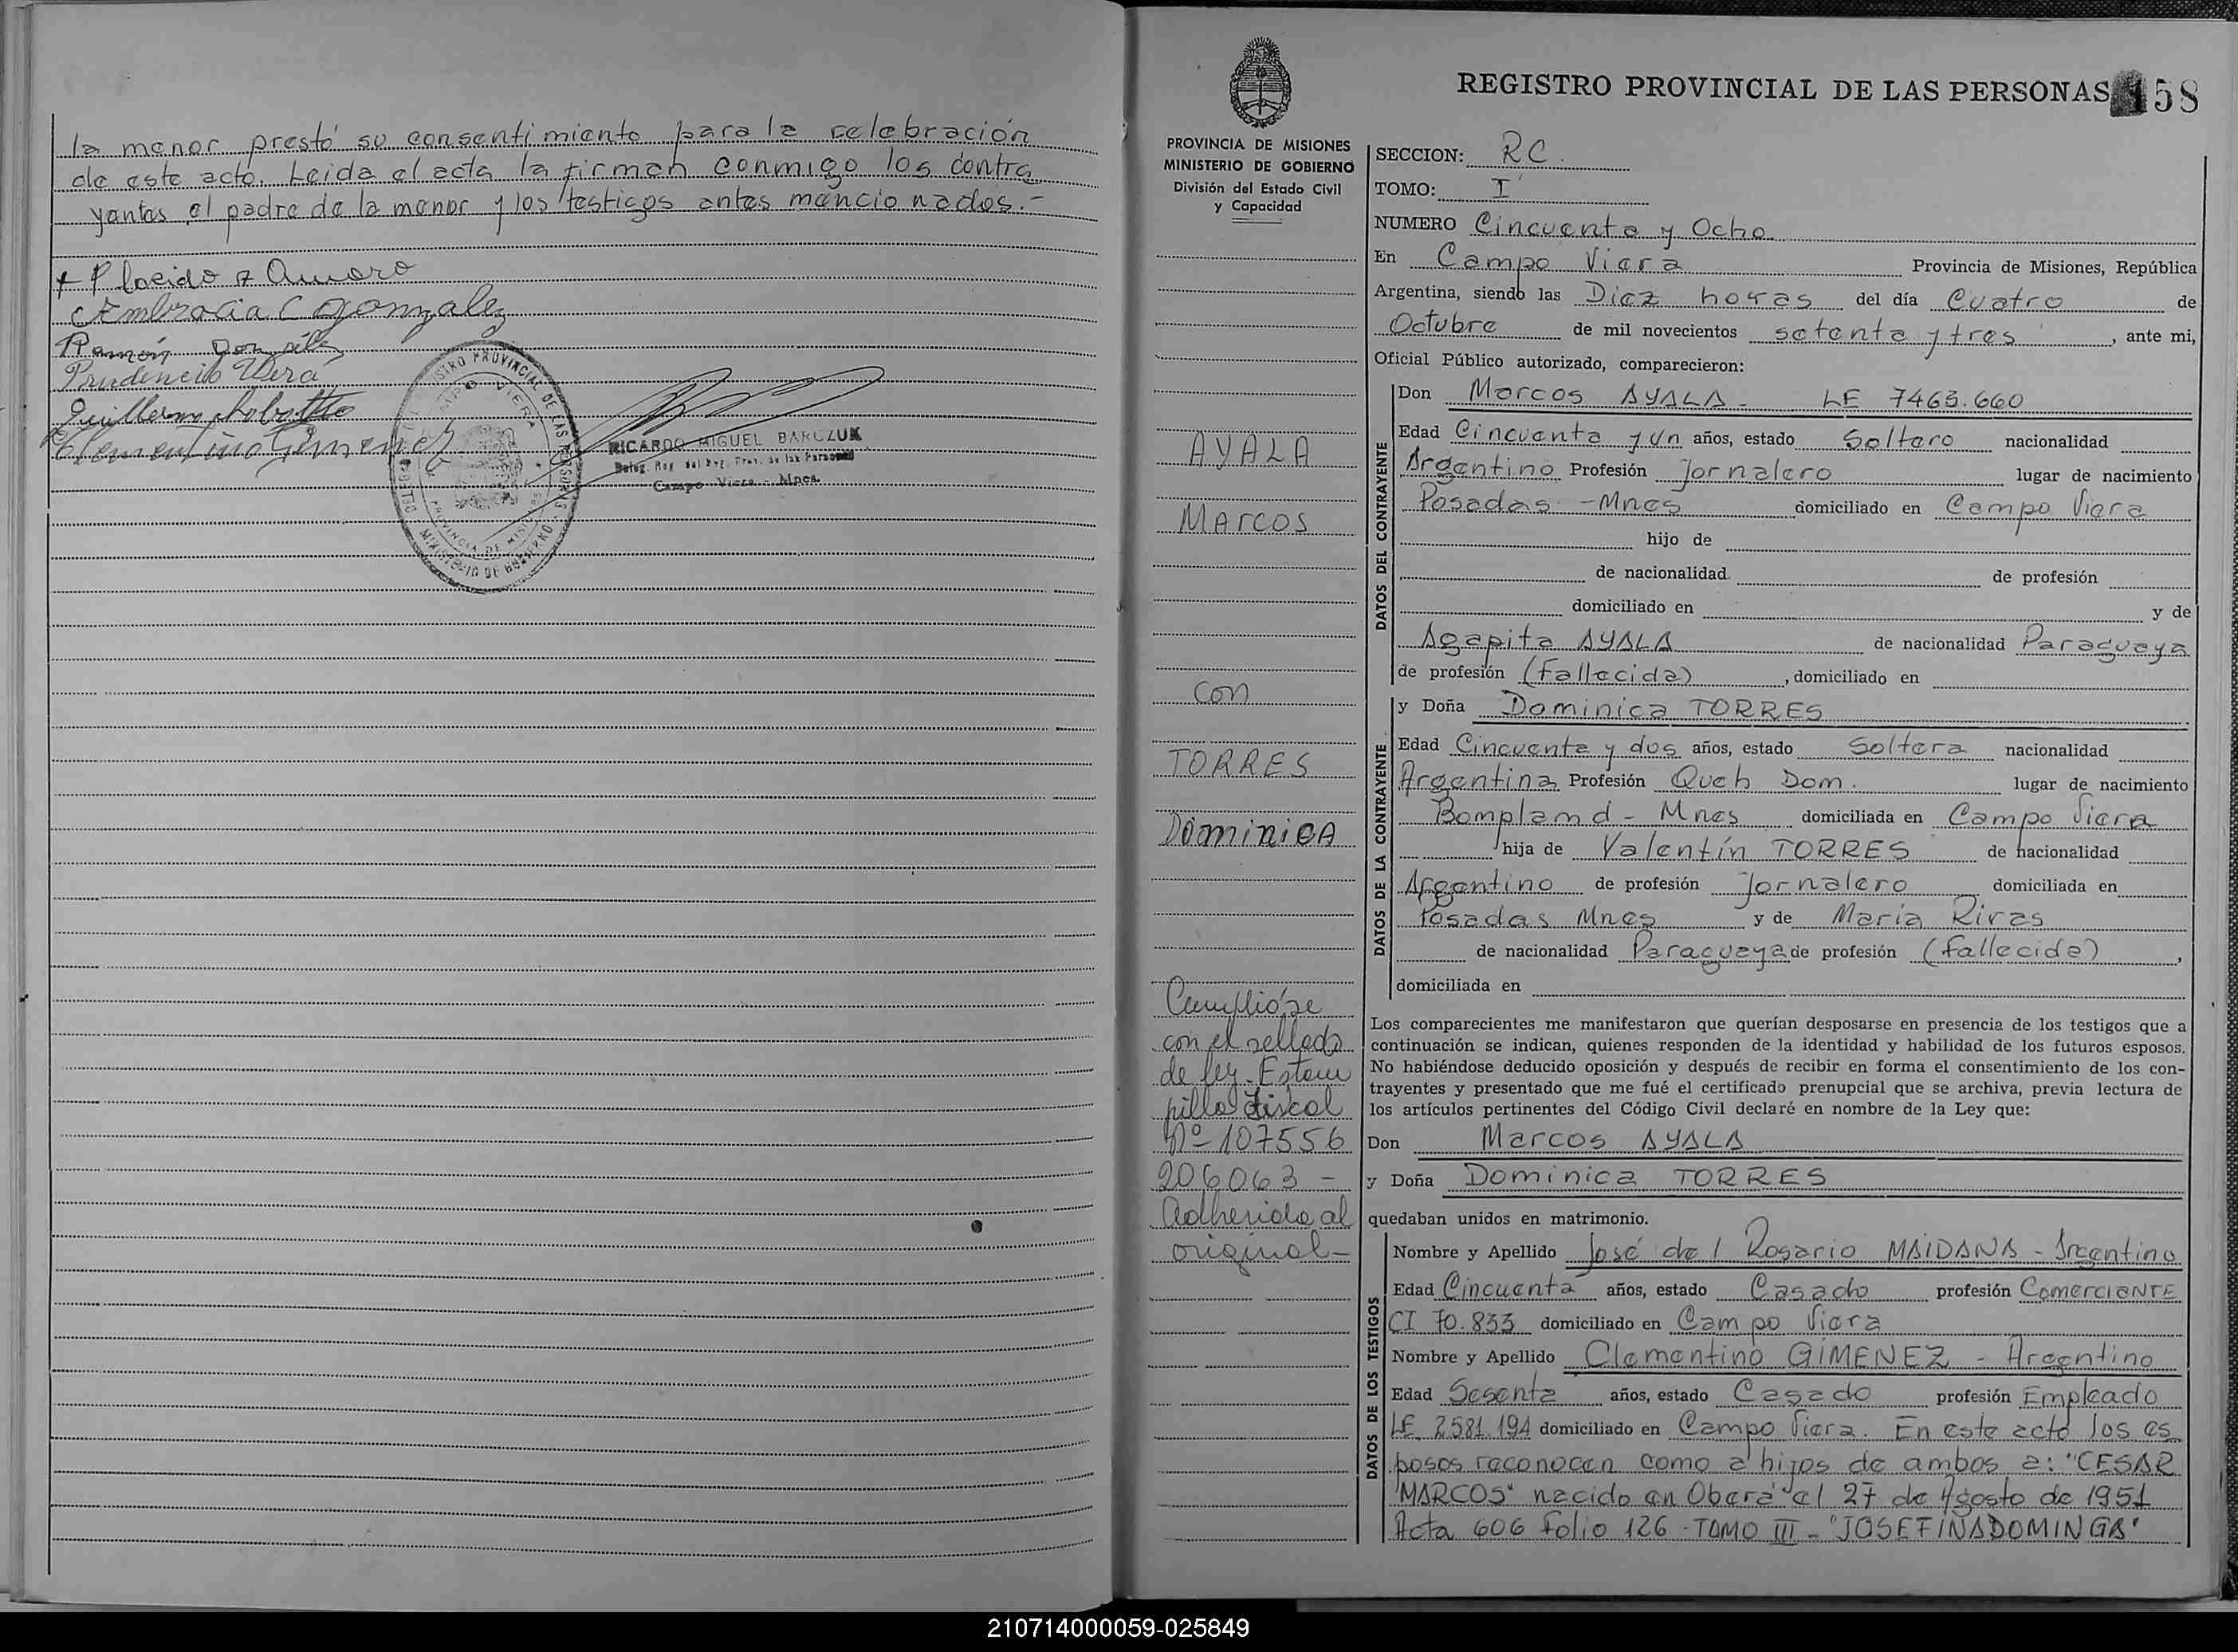 la menor prestó su consentimiento para la celebración
de este acto. Leida el acta la firman conmigo los contra
yantes, el padre de la menor y los testigos antes mencionados.-
Placido R Amaro
Ambrocia C Gonzalez
Ramón
Prudencio Vera
Guillermo
Clementino Gimenez
REGISTRO PROVINCIAL DE LAS PERSONAS
CAMPO VIERA
PROVINCIA DE MISIONES
MINISTERIO DE GOBIERNO
RICARDO MIGUEL BARCZUK
Deleg. Reg. del Reg. Prov. de las Personas
Campo Viera - Mnes.
PROVINCIA DE MISIONES
MINISTERIO DE GOBIERNO
División del Estado Civil
y Capacidad
AYALA
MARCOS
con
TORRES
DOMINICA
Cumplióse
con el sellado
de ley. Estam
pilla Fiscal
Nº 107556
206063 -
Adherida al
original -
REGISTRO PROVINCIAL DE LAS PERSONAS 58
SECCION: RC.
TOMO: I
NUMERO Cincuenta y Ocho
En Campo Viera Provincia de Misiones, República
Argentina, siendo las Diez horas del día Cuatro de
Octubre de mil novecientos setenta y tres, ante mi,
Oficial Público autorizado, comparecieron:
DATOS DEL CONTRAYENTE
Don Marcos AYALA - LE 7463.660
Edad Cincuenta y un años, estado Soltero nacionalidad
Argentino Profesión Jornalero lugar de nacimiento
Posadas - Mnes domiciliado en Campo Viera
hijo de
de nacionalidad de profesión
domiciliado en y de
Agapita AYALA de nacionalidad Paraguaya
de profesión (Fallecida), domiciliado en
DATOS DE LA CONTRAYENTE
y Doña Dominica TORRES
Edad Cincuenta y dos años, estado Soltera nacionalidad
Argentina Profesión Queh Dom. lugar de nacimiento
Bompland - Mnes domiciliada en Campo Viera
hija de Valentín TORRES de nacionalidad
Argentino de profesión Jornalero domiciliada en
Posadas Mnes y de María Rivas
de nacionalidad Paraguaya de profesión (fallecida),
domiciliada en
Los comparecientes me manifestaron que querían desposarse en presencia de los testigos que a
continuación se indican, quienes responden de la identidad y habilidad de los futuros esposos.
No habiéndose deducido oposición y después de recibir en forma el consentimiento de los con-
trayentes y presentado que me fué el certificado prenupcial que se archiva, previa lectura de
los artículos pertinentes del Código Civil declaré en nombre de la Ley que:
Don Marcos AYALA
y Doña Dominica TORRES
quedaban unidos en matrimonio.
DATOS DE LOS TESTIGOS
Nombre y Apellido José del Rosario MAIDANA - Argentino
Edad Cincuenta años, estado Casado profesión Comerciante
CI 70.833 domiciliado en Campo Viera
Nombre y Apellido Clementino GIMENEZ - Argentino
Edad Sesenta años, estado Casado profesión Empleado
LE. 2581.194 domiciliado en Campo Viera. En este acto los es
posos reconocen como a hijos de ambos a: "CESAR
MARCOS" nacido en Oberá el 27 de Agosto de 1951
Acta 606 Folio 126 - TOMO III - "JOSEFINA DOMINGA"
210714000059-025849